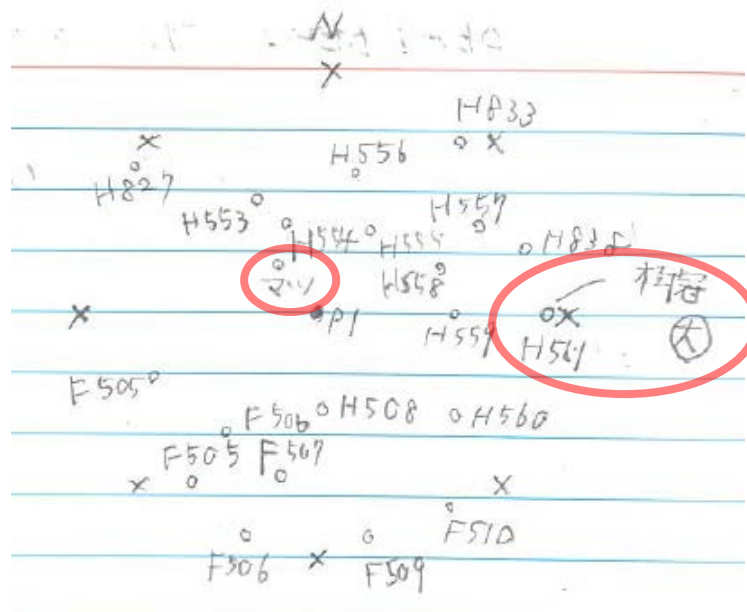 N
H833
H556
H827
H557
H553
H554
H555
H838
マツ
H558
樹冠
P1
H559
H561
大
F505
F506
H508
H560
F505
F507
F510
F506
F509